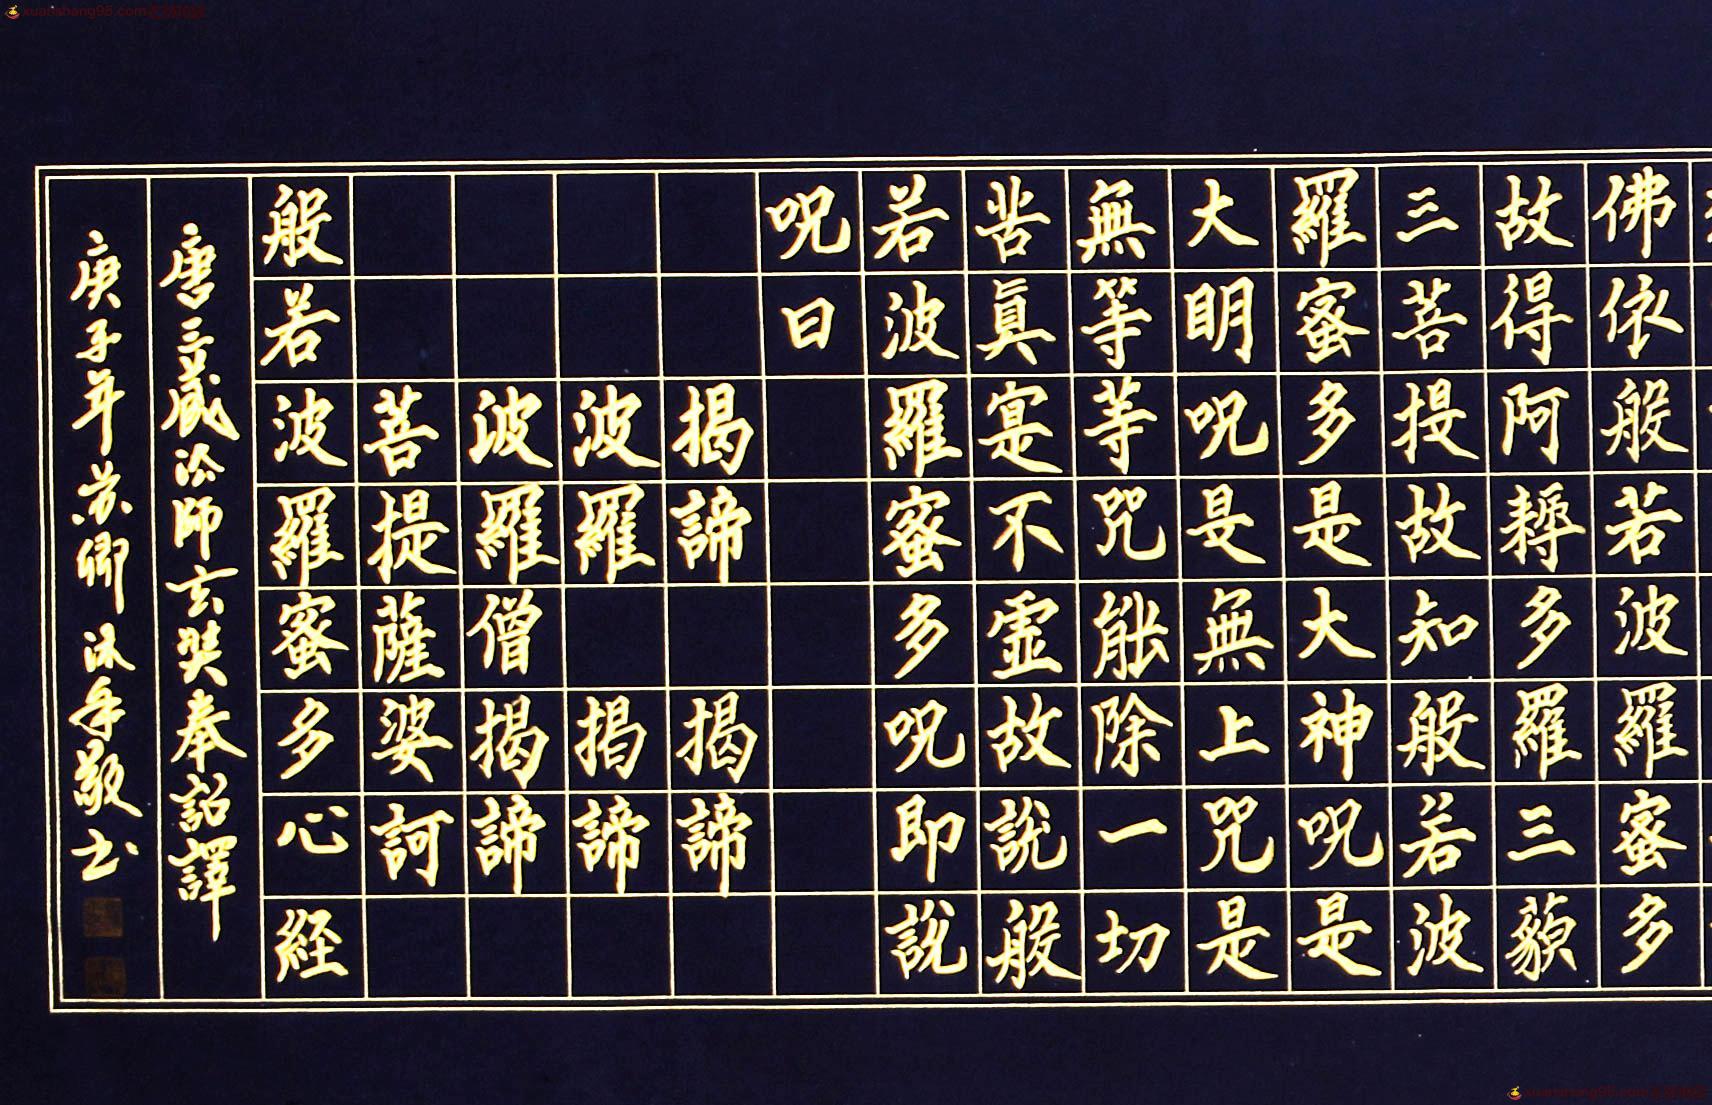 佛依般若波羅蜜多
故得阿耨多羅三藐
三菩提故知般若波
羅蜜多是大神呪是
大明呪是無上咒是
無等等咒能除一切
苦眞寔不虛故說般
若波羅蜜多呪即說
呪曰
揭諦 揭諦
波羅 揭諦
波羅僧揭諦
菩提薩婆訶
般若波羅蜜多心経
唐三藏法師玄奘奉詔譯
庚子年苏卿沐手敬书
xuanshang98.com
xuanshang98.com